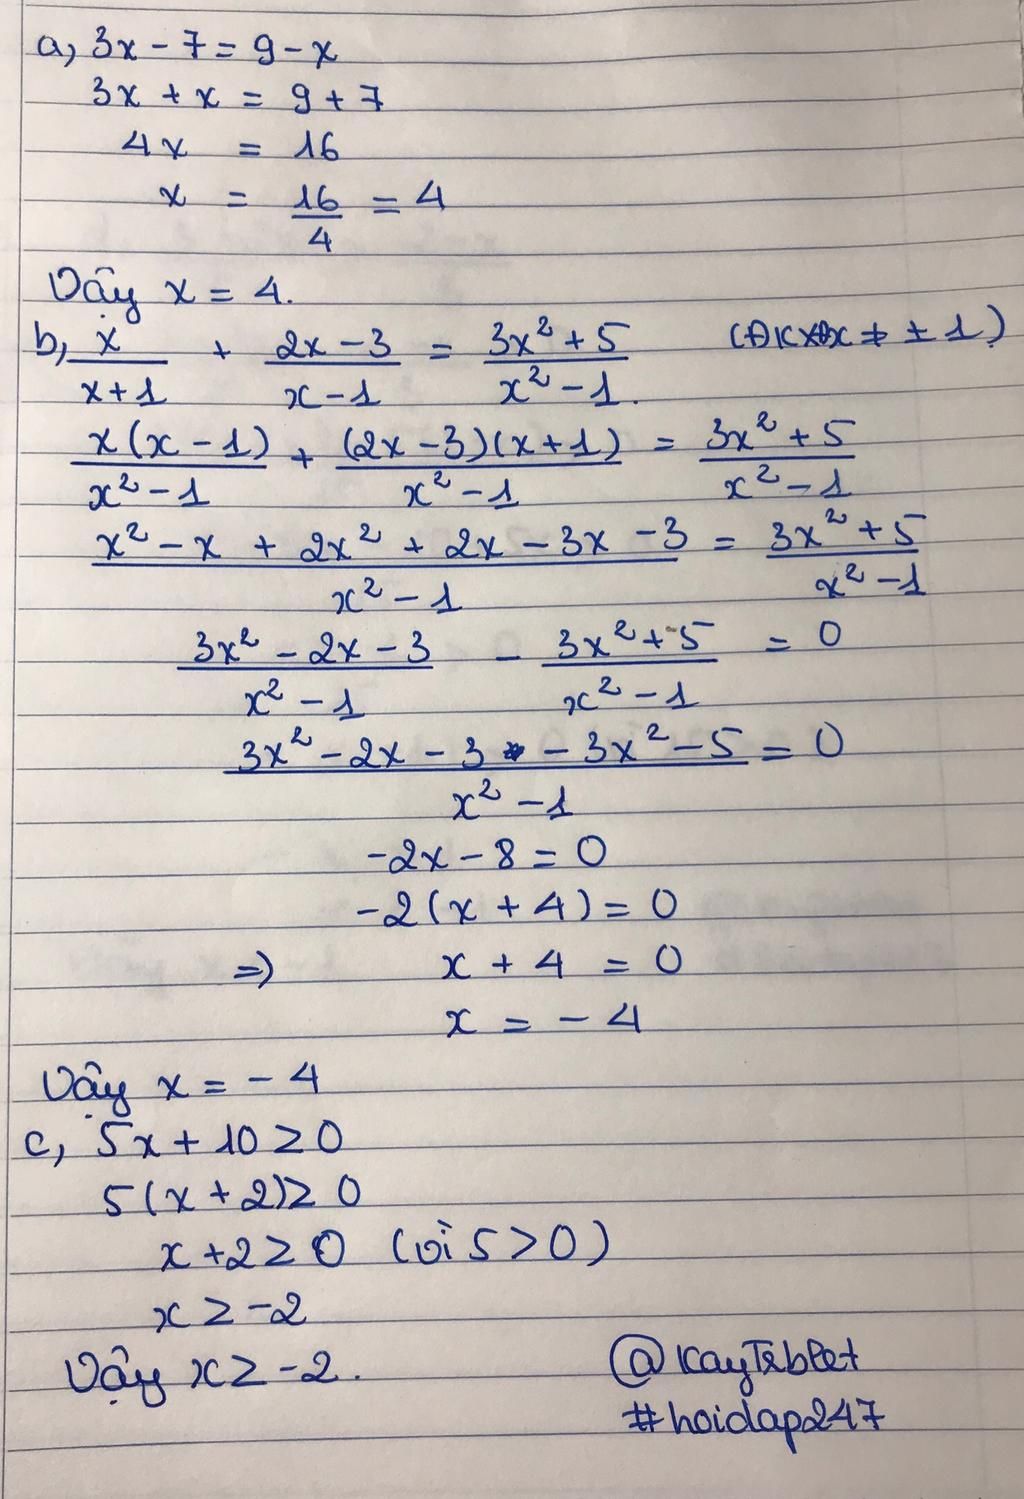 a, 3x - 7 = 9 - x
3x + x = 9 + 7
4x = 16
x = 16/4 = 4
Vậy x = 4.
b, x/(x+1) + (2x-3)/(x-1) = (3x²+5)/(x²-1). (ĐKXĐ x ≠ ±1)
x(x-1)/(x²-1) + (2x-3)(x+1)/(x²-1) = (3x²+5)/(x²-1)
(x² - x + 2x² + 2x - 3x - 3)/(x²-1) = (3x²+5)/(x²-1)
(3x² - 2x - 3)/(x²-1) - (3x²+5)/(x²-1) = 0
(3x² - 2x - 3 - 3x² - 5)/(x²-1) = 0
-2x - 8 = 0
-2(x + 4) = 0
=> x + 4 = 0
x = -4
Vậy x = -4
c, 5x + 10 ≥ 0
5(x + 2) ≥ 0
x + 2 ≥ 0 (vì 5 > 0)
x ≥ -2
Vậy x ≥ -2.
#hoidap247